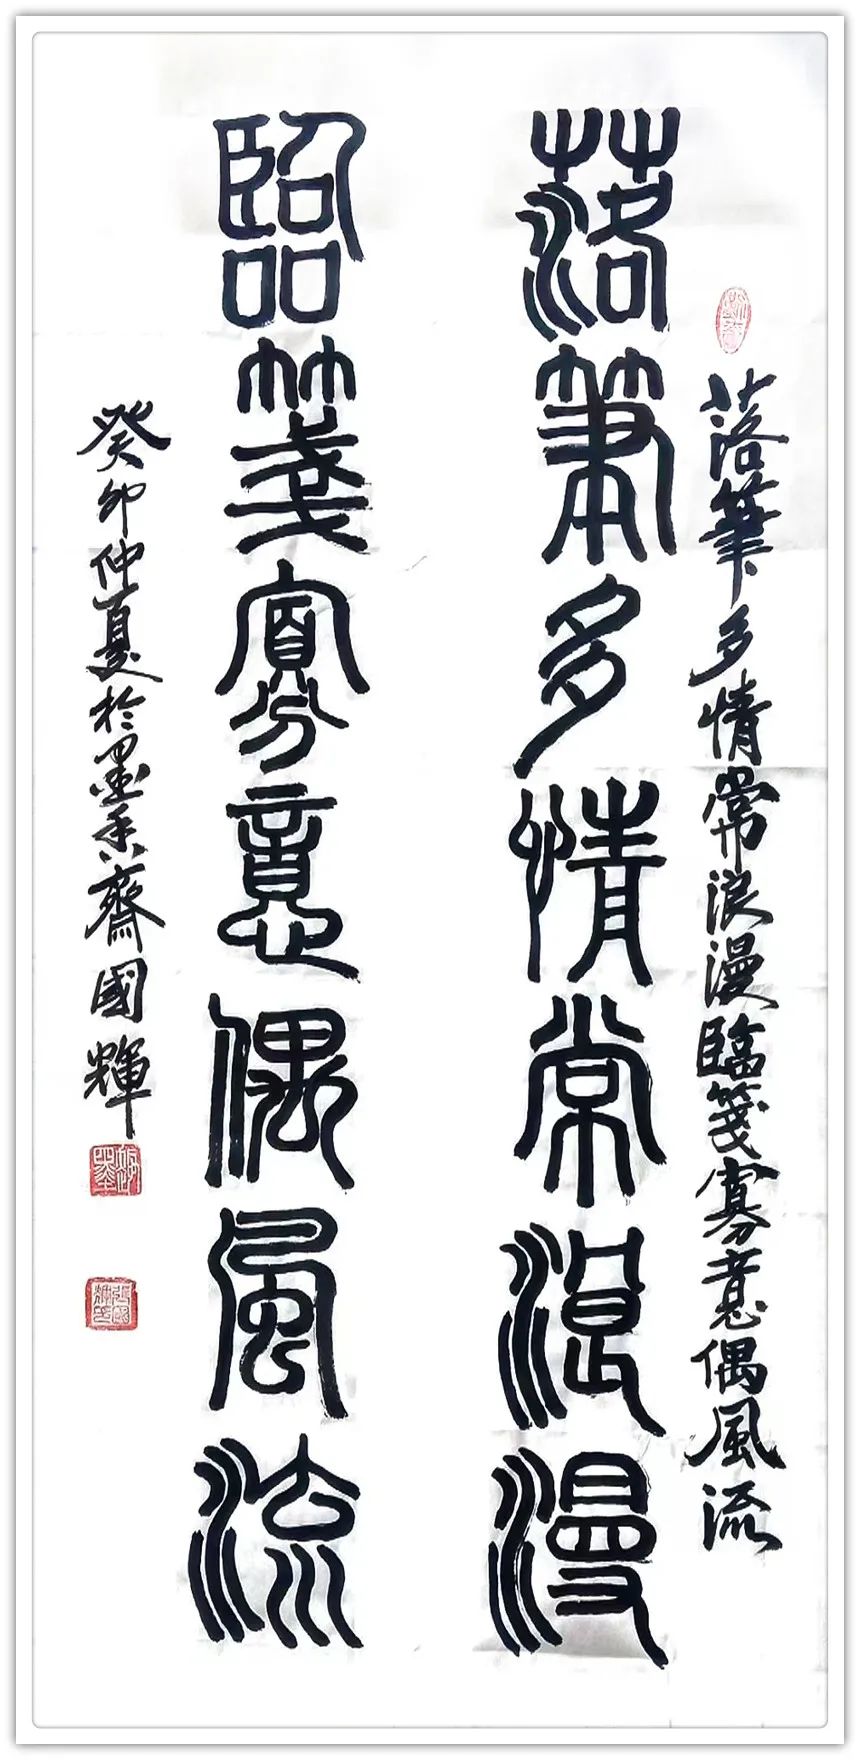 落筆多情常浪漫臨箋寡意偶風流
落筆多情常浪漫
臨箋寡意偶風流
癸卯仲夏於墨香齋國輝